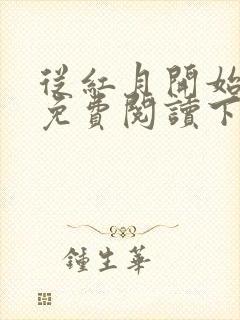 從紅月開始
免費閱讀下
鍾生華